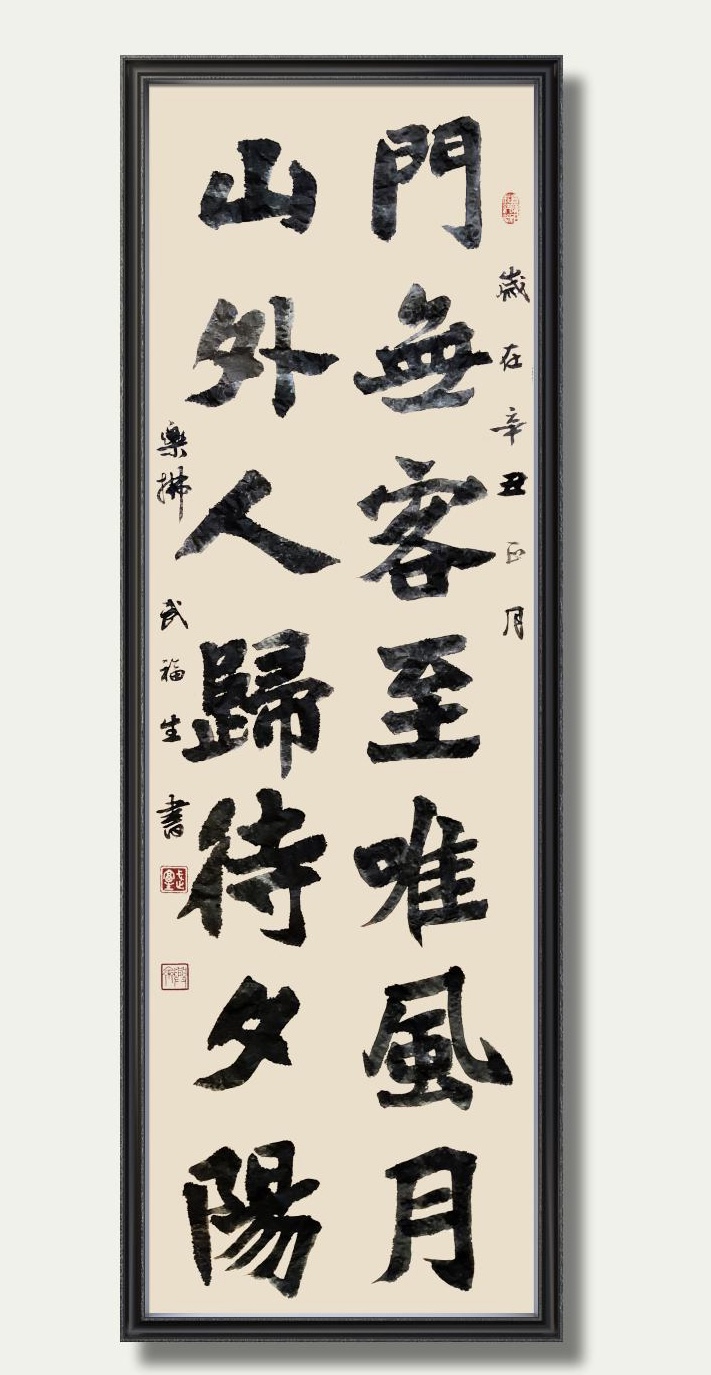 歲在辛丑正月
門無客至唯風月
山外人歸待夕陽
樂拂 武福生書